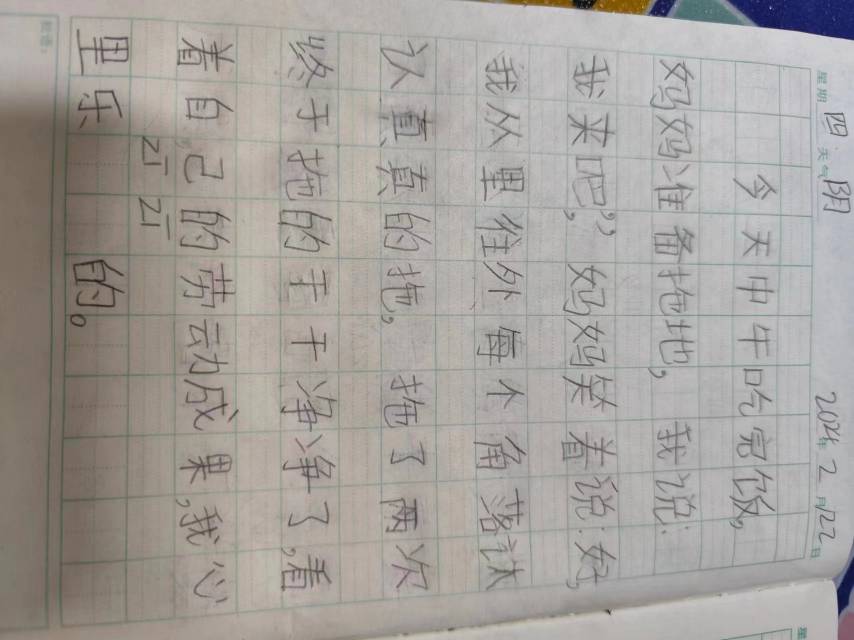 星期四 天气阴 2024年2月22日
今天中午吃完饭,
妈妈准备拖地,我说:
我来吧,” 妈妈笑着说:好,
我从里往外每个角落认
认真真的拖,拖了两次
终于拖的干干净净了,看
着自己的劳动成果,我心
里乐zī zī的。
星